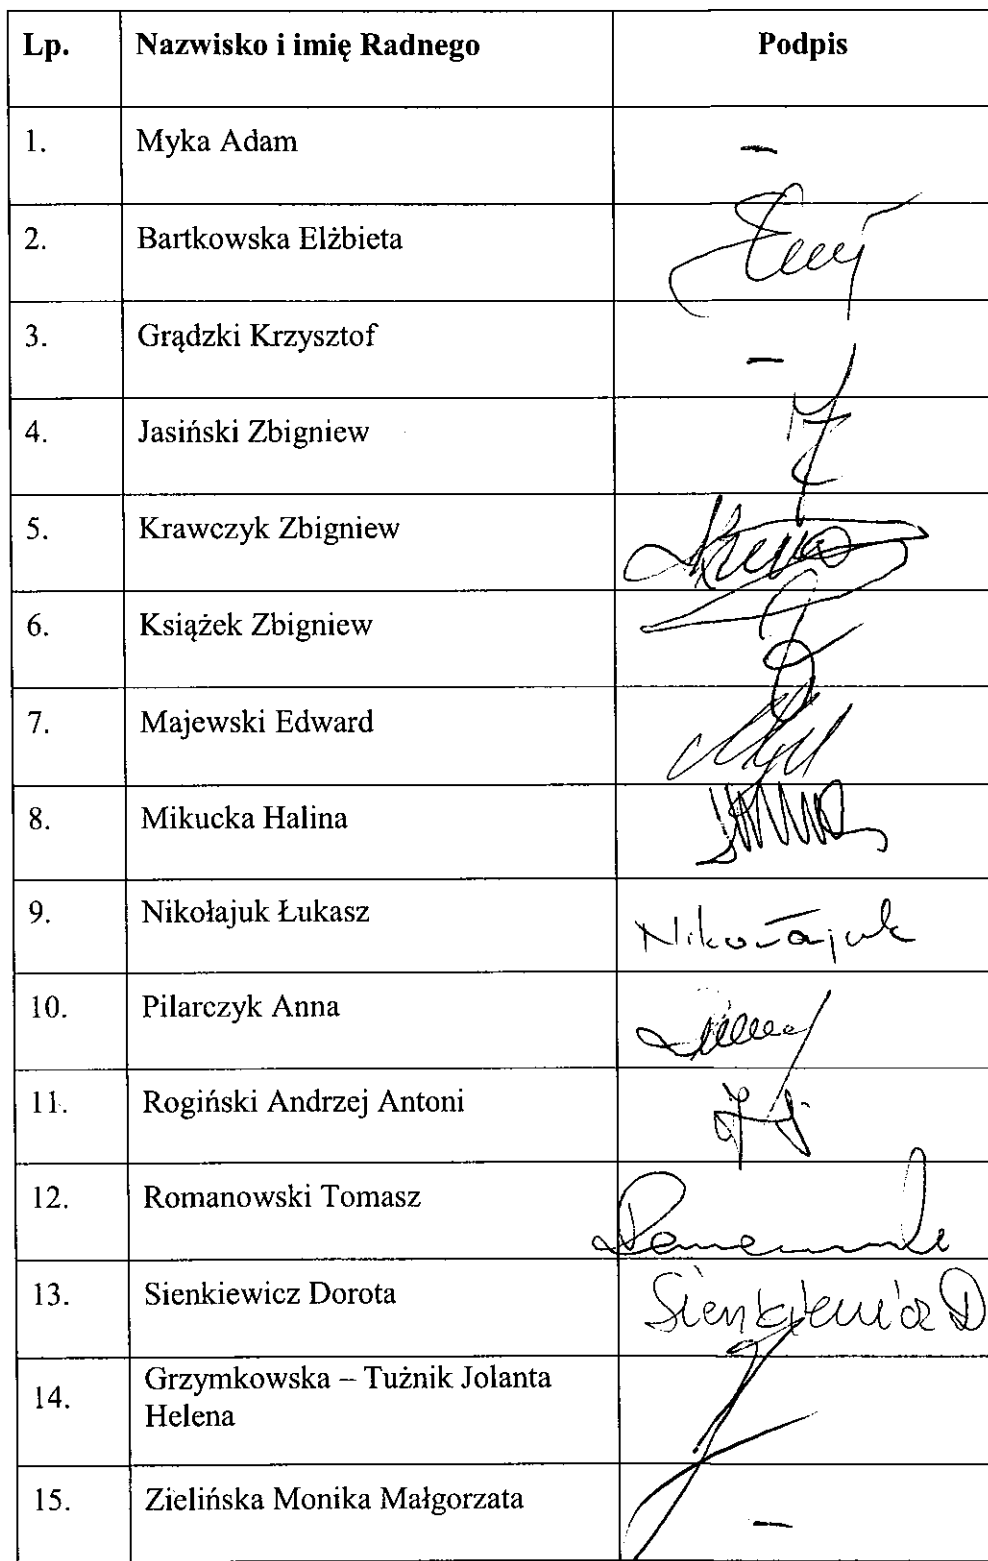 Lp. Nazwisko i imię Radnego Podpis
1. Myka Adam –
2. Bartkowska Elżbieta
3. Grądzki Krzysztof –
4. Jasiński Zbigniew
5. Krawczyk Zbigniew
6. Książek Zbigniew
7. Majewski Edward
8. Mikucka Halina
9. Nikołajuk Łukasz Nikołajuk
10. Pilarczyk Anna
11. Rogiński Andrzej Antoni
12. Romanowski Tomasz
13. Sienkiewicz Dorota Sienkiewicz D
14. Grzymkowska – Tużnik Jolanta
Helena
15. Zielińska Monika Małgorzata –